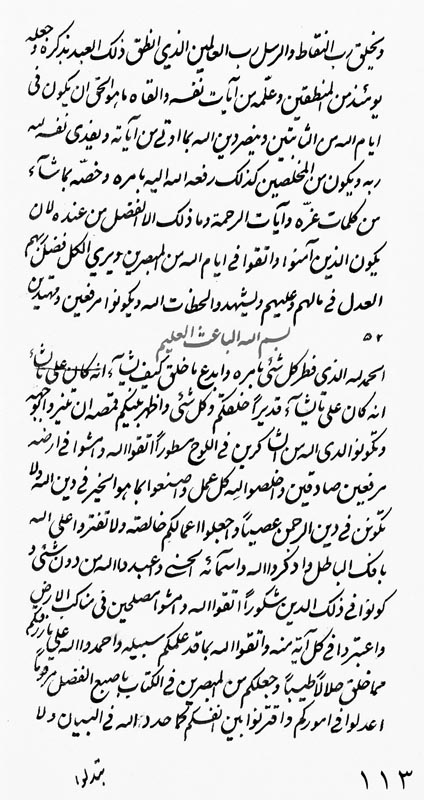 ويخلق رب النقاط والرسل رب العالمين الذي انطق ذلك العبد بذكره وجعله
يومئذ من المنطقين وعلّمه من آيات نفسه والقاه ما هو الحق ان يكون في
ايام الله من الثابتين وينصر دين الله بما اوتي من آياته ويفدي نفسه لله
ربه ويكون من المخلصين كذلك رفعه الله اليه بامره وخصّه بما شآء
من كلمات عزّه وآيات الرحمة وما ذلك الا الفضل من عنده لان
يكون الذين آمنوا واتقوا في ايام الله من المبصرين ويري الكل فضل ربهم
العدل في مالهم وعليهم وليشهدوا لحظات الله ويكونوا مرفعين ومهتدين
٥٢ بسم الله الباعث العليم
الحمد لله الذي فطر كل شئ بامره وابدع ما خلق كيف يشآء انه كان على ما يشآء
انه كان على ما يشآء قديراً خلقكم وكل شئ واظهر عليكم قمصه ان عزيز وابوجهه
وتكونوا لدى الله من الشاكرين في اللوح مسطوراً اتقوا الله وامشوا في ارضه
مرفعين صادقين واخلصوا لله كل عمل واصنعوا بما هو الخير في دين الله ولا
تكونن في دين الرحمن عصيباً واجعلوا اعمالكم خالصة ولا تفتروا على الله
بافك الباطل واذكروا الله واسمآئه الحسنى واعبدوا الله من دون شئ و
كونوا في ذلك الدين شكوراً اتقوا الله وامشوا مصلحين في مناكب الارض
واعتبروا في كل آية منه واتقوا الله بما قد علمكم سبيله واحمدوا الله على ما رزقكم
مما خلق حلالاً طيباً وجعلكم من المبصرين في الكتاب باصبع الفضل مرقوماً
اعدلوا في اموركم واقترنوا بين انفسكم كما حدد الله في البيان ولا
تبدلوا
١١٣